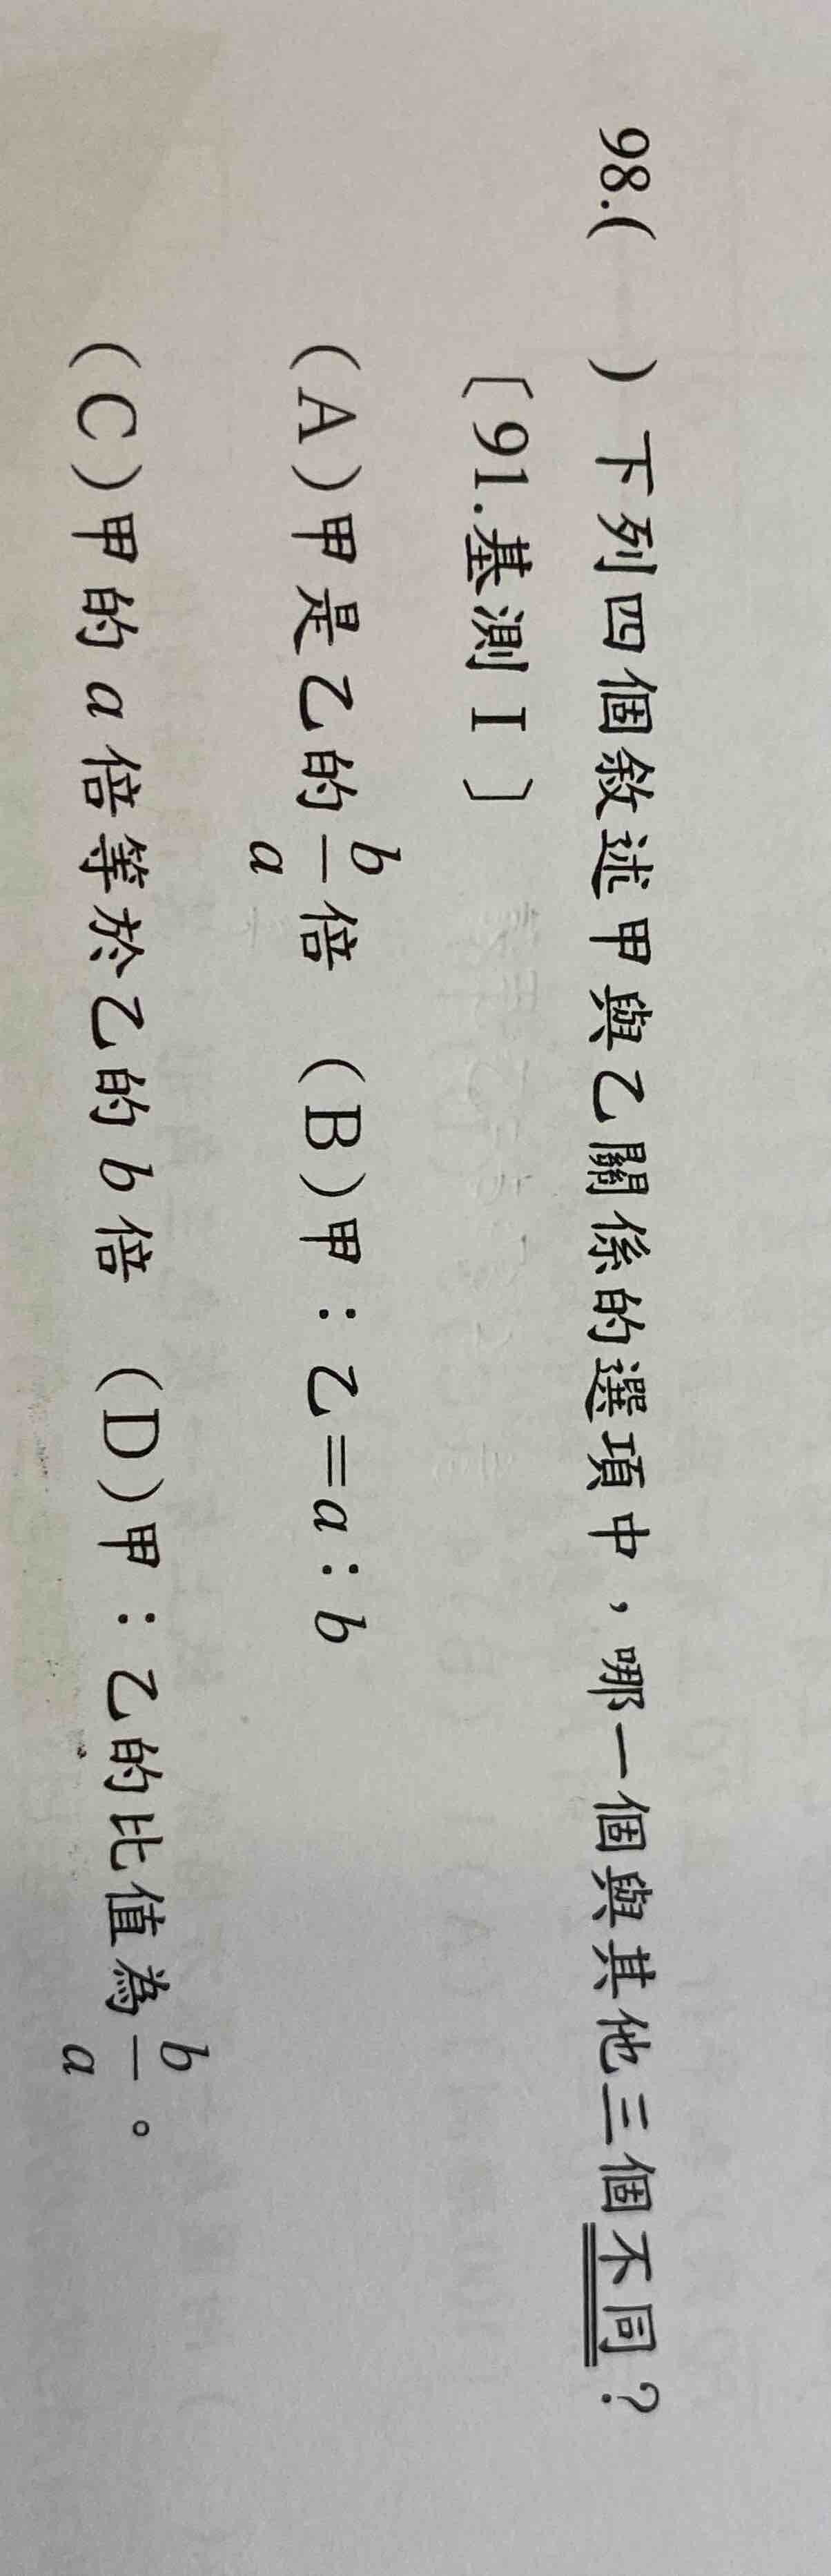 98.(　)下列四個敘述甲與乙關係的選項中，哪一個與其他三個不同？
〔91.基測Ⅰ〕
(A)甲是乙的b/a倍 (B)甲：乙=a：b
(C)甲的a倍等於乙的b倍 (D)甲：乙的比值為b/a。